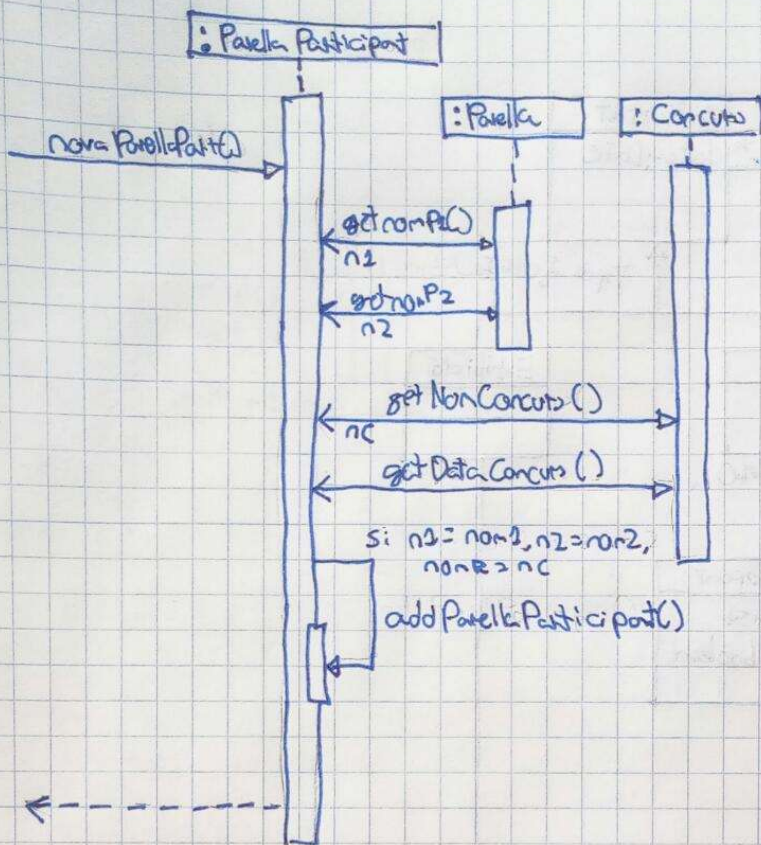 : Parella Participant
: Parella
: Concurs
novaParellaPart()
getnomP1()
n1
getnomP2
n2
getNomConcurs()
nc
getDataConcurs()
si n1 = nom1, n2 = nom2,
= nc
addParellaParticipant()